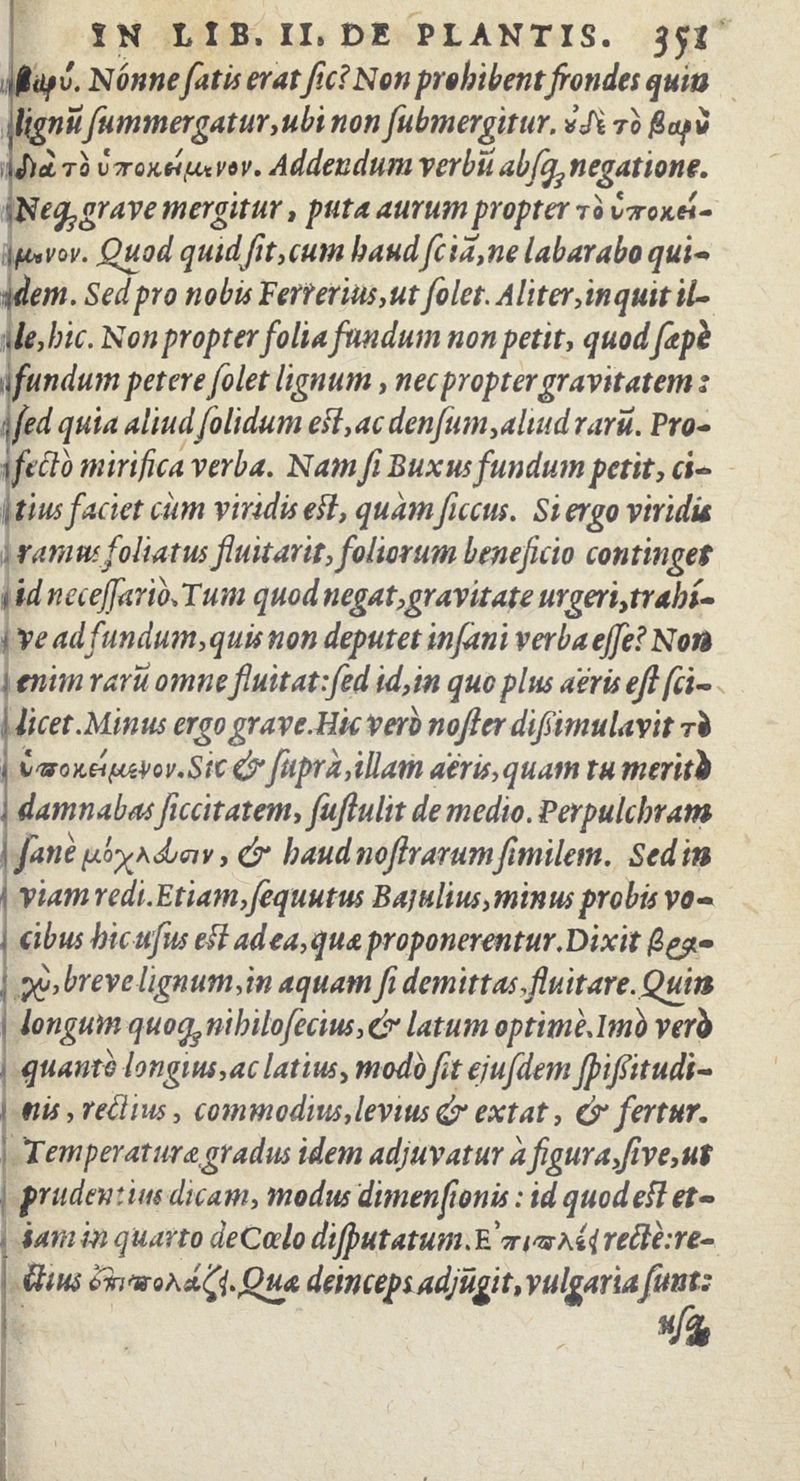 IN LIB. II. DE PLANTIS. 351
βαρύ. Nónne ſatis erat ſic? Non prohibent frondes quin
lignũ ſummergatur, ubi non ſubmergitur. οὐδὲ τὸ βαρὺ
διὰ τὸ ὑποκείμενον. Addendum verbũ abſq; negatione.
Neq; grave mergitur, puta aurum propter τὸ ὑποκεί-
μενον. Quod quid ſit, cum haud ſciã, ne labarabo qui-
dem. Sed pro nobis Ferrerius, ut ſolet. Aliter, inquit il-
le, hic. Non propter folia fundum non petit, quod ſæpè
fundum petere ſolet lignum, nec propter gravitatem:
ſed quia aliud ſolidum eſt, ac denſum, aliud rarũ. Pro-
fectò mirifica verba. Nam ſi Buxus fundum petit, ci-
tius faciet cùm viridis eſt, quàm ſiccus. Si ergo viridis
ramus foliatus fluitarit, foliorum beneficio continget
id neceſſariò. Tum quod negat, gravitate urgeri, trahí-
ve ad fundum, quis non deputet inſani verba eſſe? Non
enim rarũ omne fluitat: ſed id, in quo plus aëris eſt ſci-
licet. Minus ergo grave. Hic verò noſter diſſimulavit τὸ
ὑποκείμενον. Sic & ſuprà, illam aëris, quam tu meritò
damnabas ſiccitatem, ſuſtulit de medio. Perpulchram
ſanè μόχλευσιν, & haud noſtrarum ſimilem. Sed in
viam redi. Etiam, ſequutus Bajulius, minus probis vo-
cibus hic uſus eſt ad ea, quæ proponerentur. Dixit βρα-
χὺ, breve lignum, in aquam ſi demittas, fluitare. Quin
longum quoq; nihiloſecius, & latum optimè. Imò verò
quantò longius, ac latius, modò ſit ejuſdem ſpiſſitudi-
nis, rectius, commodius, levius & extat, & fertur.
Temperaturæ gradus idem adjuvatur à figura, ſive, ut
prudentius dicam, modus dimenſionis: id quod eſt et-
iam in quarto de Cœlo diſputatum. Ἐπιπλεῖ rectè: re-
ctius ἐπιπολάζει. Quæ deinceps adjũgit, vulgaria ſunt:
uſq;